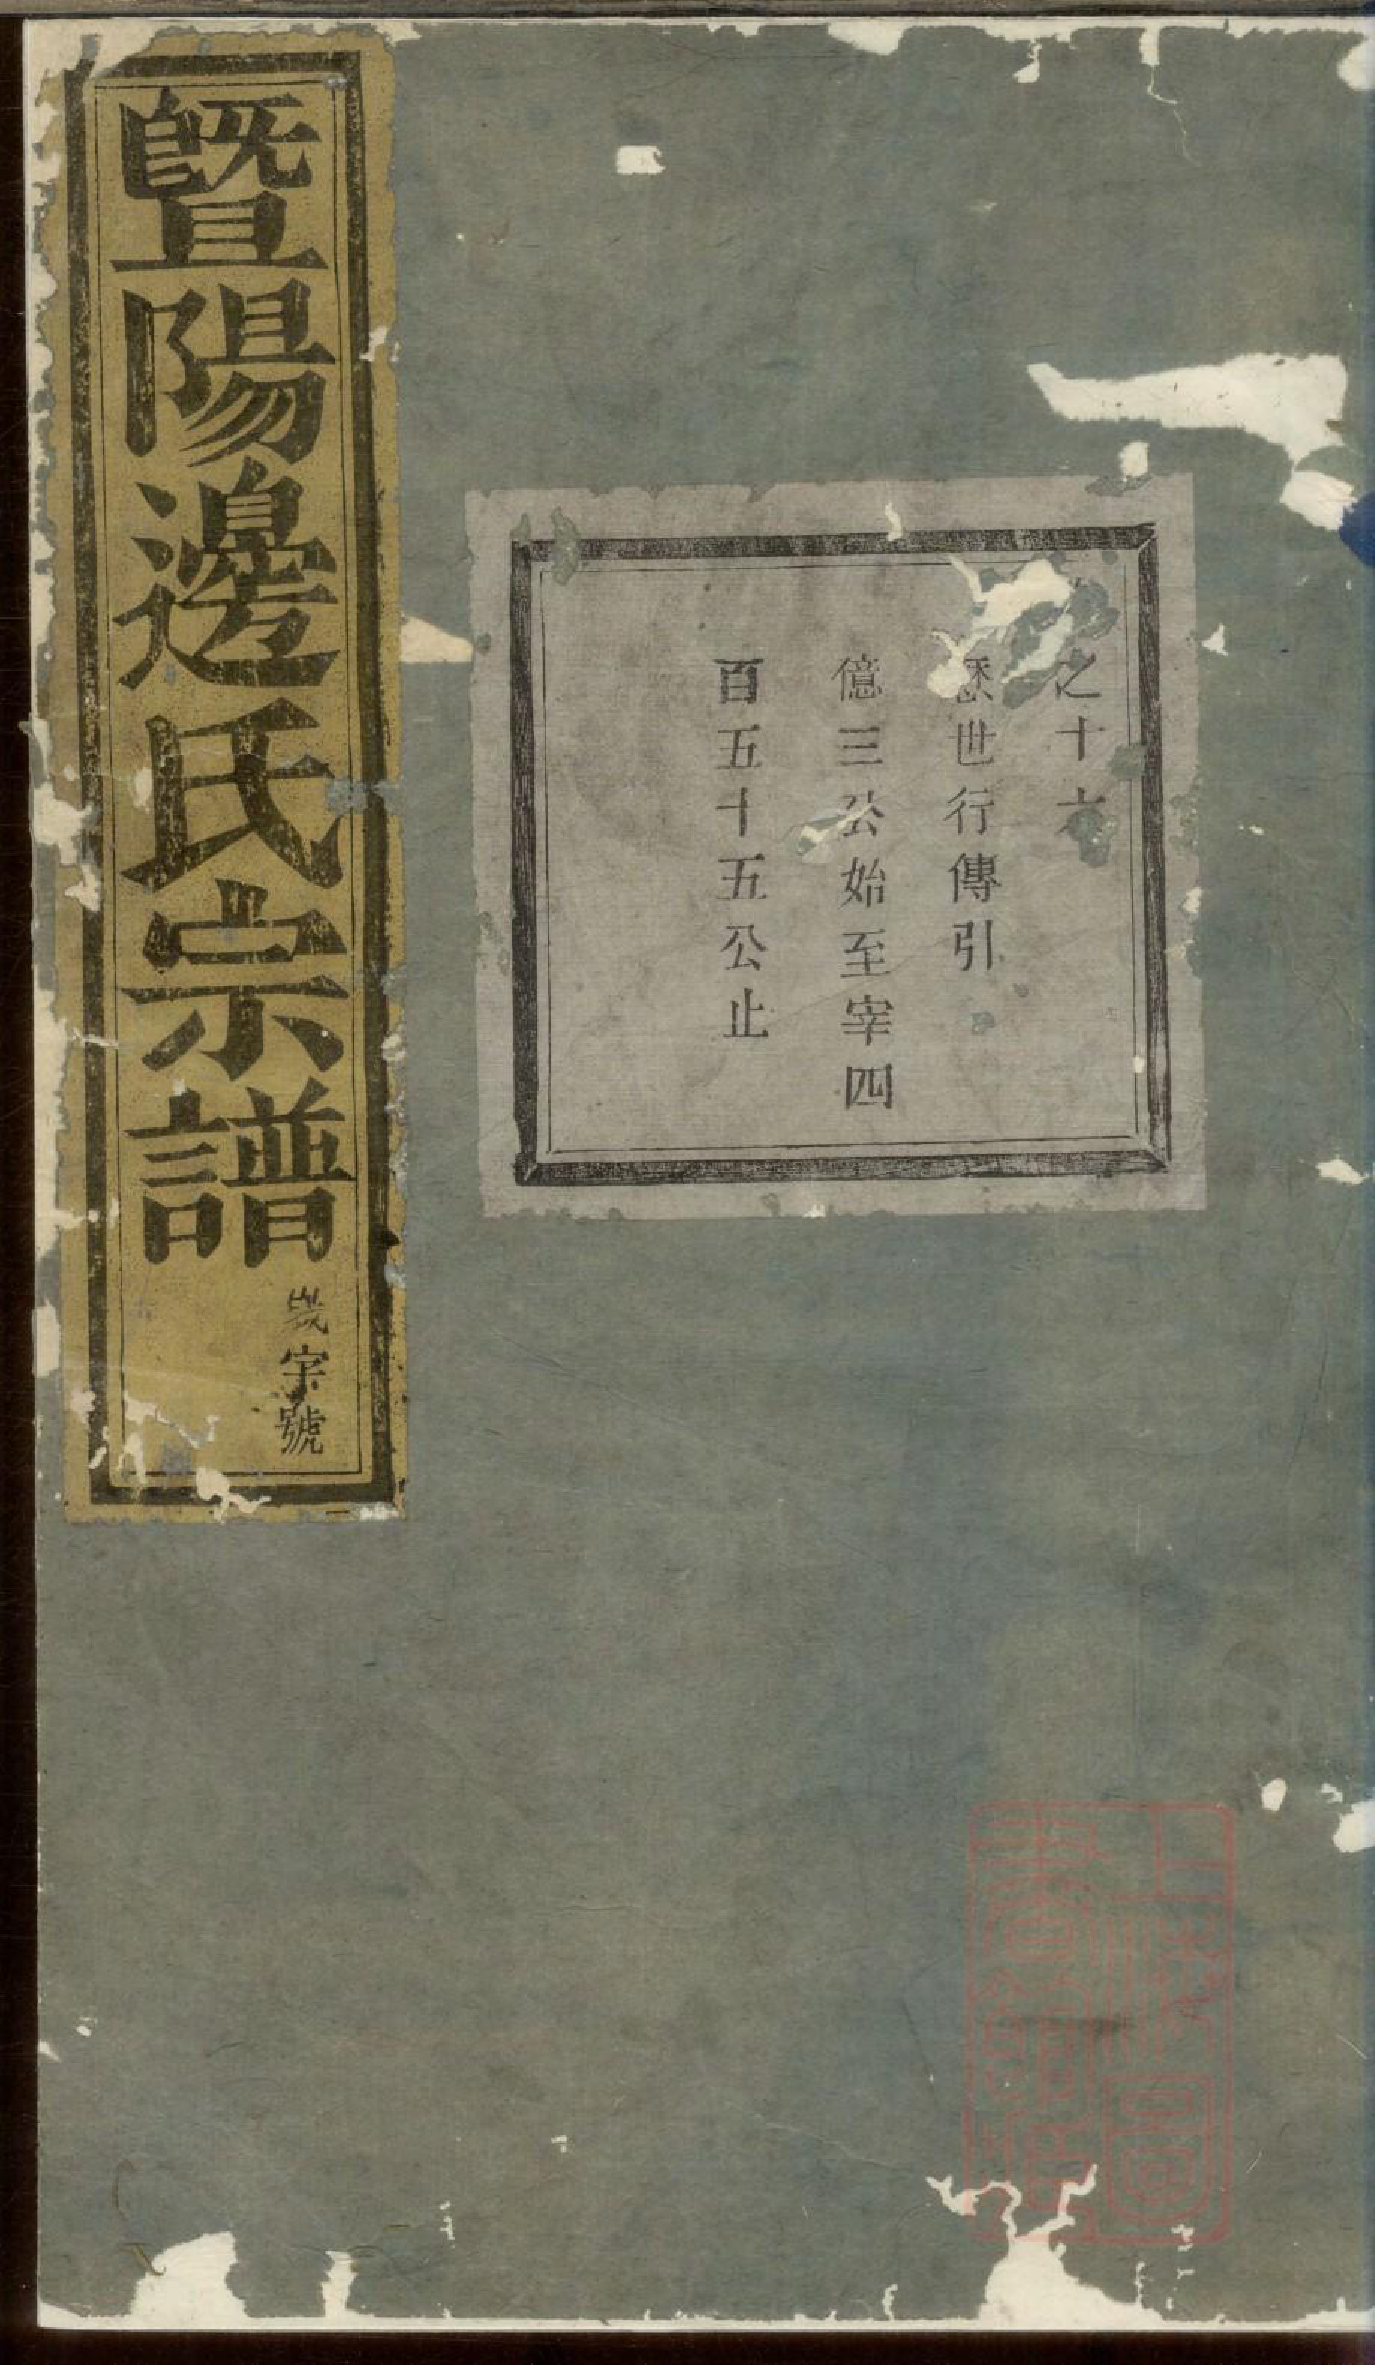 之十六
歷世行傳引
億三公始至宰四
百五十五公止
暨陽邊氏宗譜
歲字號
上海圖書館藏